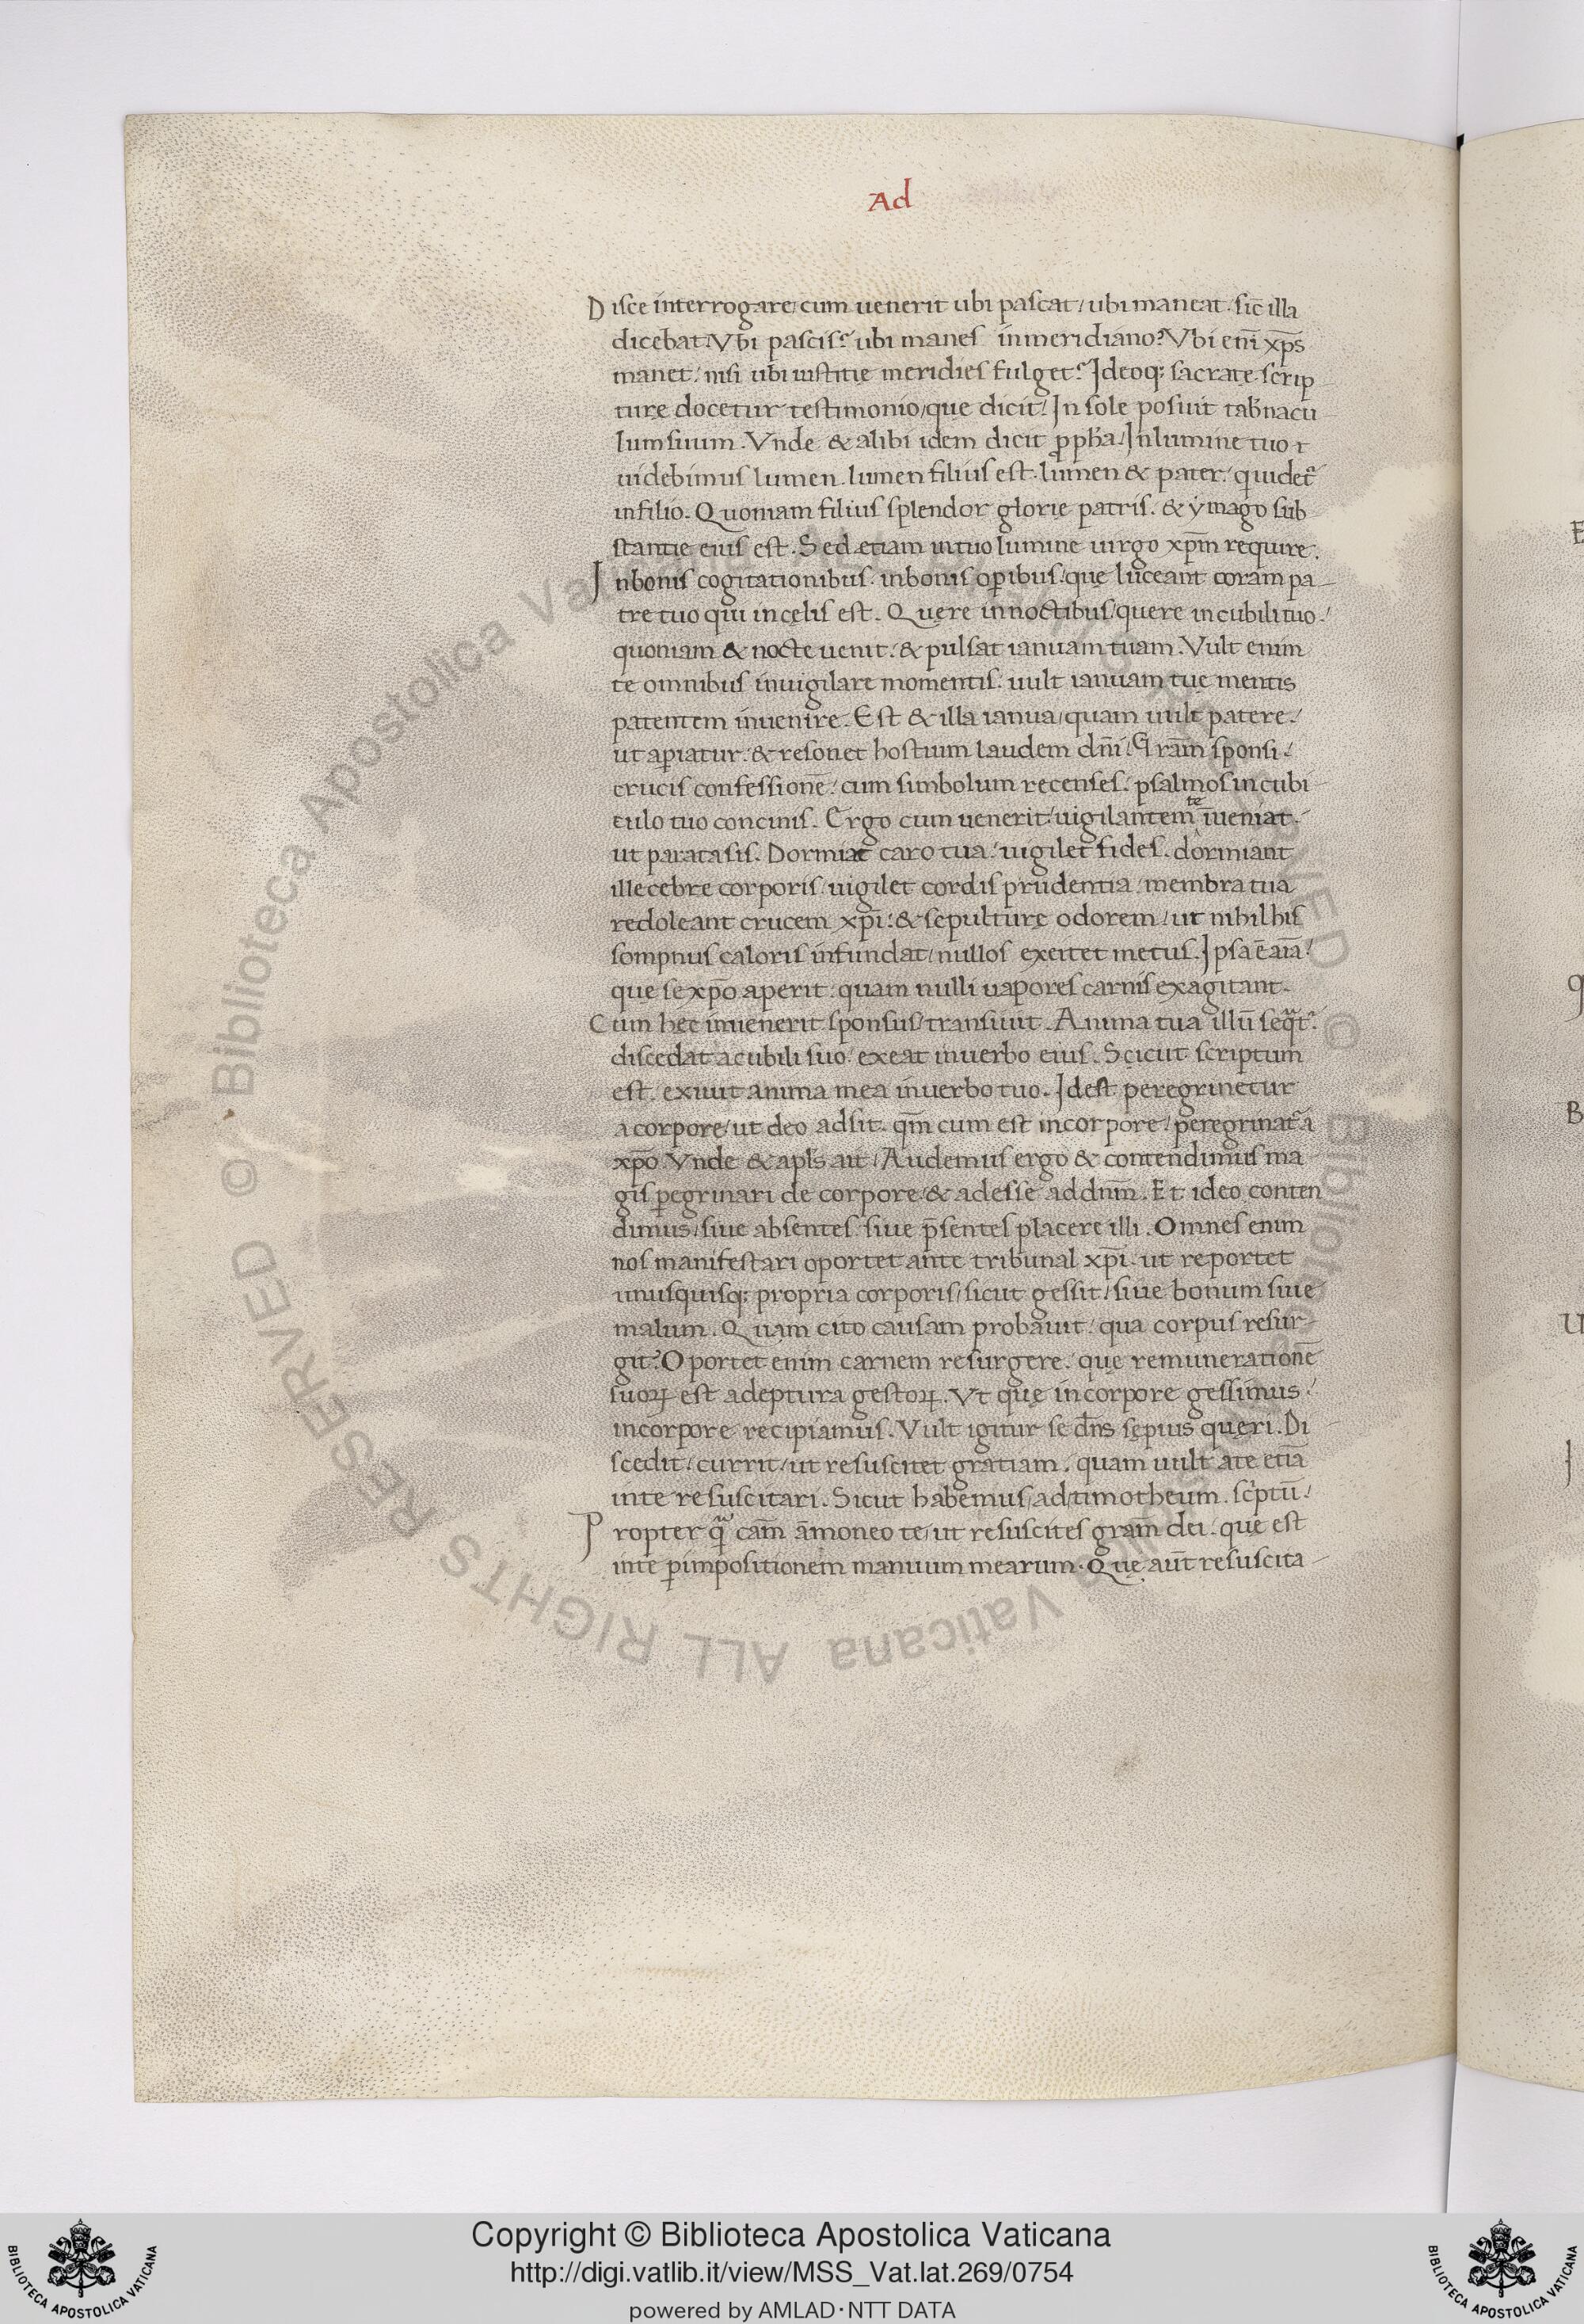 Ad
Disce interrogare/ cum uenerit ubi pascat/ ubi maneat. sic̄ illa
dicebat. Vbi pascis? ubi manes in meridiano? Vbi eni̅ xp̅s
manet/ nisi ubi iustitię meridies fulget? Ideoq; sacratę scrip
turę docetur testimonio/ quę dicit/ In sole posuit tab̅nacu
lum suum. Vnde & alibi idem dicit p̱ph̅a/ In lumine tuo
uidebimus lumen. lumen filius est. lumen & pater. q uidet̃
in filio. Quoniam filius splendor glorię patris. & ymago sub
stantię eius est. Sed etiam in tuo lumine uirgo xp̅m require.
In bonis cogitationibus. in bonis op̱ibus/ quę luceant coram pa
tre tuo qui in cęlis est. Quęre in noctibus/ quere in cubili tuo/
quoniam & nocte uenit. & pulsat ianuam tuam. Vult enim
te omnibus inuigilare momentis. uult ianuam tuę mentis
patentem inuenire. Est & illa ianua/ quam uult patere/
ut ap̱iatur. & resonet hostium laudem dn̅i/ Gra̅m sponsi/
crucis confessione̅/ cum simbolum recenses. psalmos in cubi
culo tuo concinis. Ergo cum uenerit/ uigilantem te i̅ueniat.
ut parata sis. Dormiat caro tua/ uigilet fides. dormiant
illecebre corporis/ uigilet cordis prudentia. membra tua
redoleant crucem xp̅i. & sepulturę odorem/ ut nihil his
sompnus caloris infundat/ nullos excitet metus. Ipsa e̅ ai̅a/
que se xp̅o aperit. quam nulli uapores carnis exagitant.
Cum hęc inuenerit sponsus/ transiuit. Anima tua illu̅ seq̃t̃.
discedat a cubili suo. exeat in uerbo eius. Scicut scriptum
est. exiuit anima mea in uerbo tuo. Idest peregrinetur
a corpore/ ut deo adsit. qm̅ cum est in corpore/ peregrinat̃ a
xp̅o. Vnde & apl̅s ait/ Audemus ergo & contendimus ma
gis p̱egrinari de corpore/ & adesse ad dnm̅. Et ideo conten
dimus/ siue absentes. siue p̅sentes placere illi. Omnes enim
nos manifestari oportet ante tribunal xp̅i. ut reportet
unusquisq; propria corporis/ sicut gessit/ siue bonum siue
malum. Quam cito causam probauit/ qua corpus resur
git? Oportet enim carnem resurgere. que remuneratione̅
suoꝝ est adeptura gestoꝝ. Vt quę in corpore gessimus/
in corpore recipiamus. Vult igitur se dn̅s sępius quęri. Di
scedit/ currit/ ut resuscitet gratiam. quam uult a te etia̅
in te resuscitari. Sicut habemus/ ad timotheum. sc̓ptu̅/
Propter q̃ ca̅m a̅moneo te/ ut resuscites gra̅m dei. quę est
in te p̱ impositionem manuum mearum. Quę au̅t resuscita
Copyright © Biblioteca Apostolica Vaticana
http://digi.vatlib.it/view/MSS_Vat.lat.269/0754
powered by AMLAD·NTT DATA